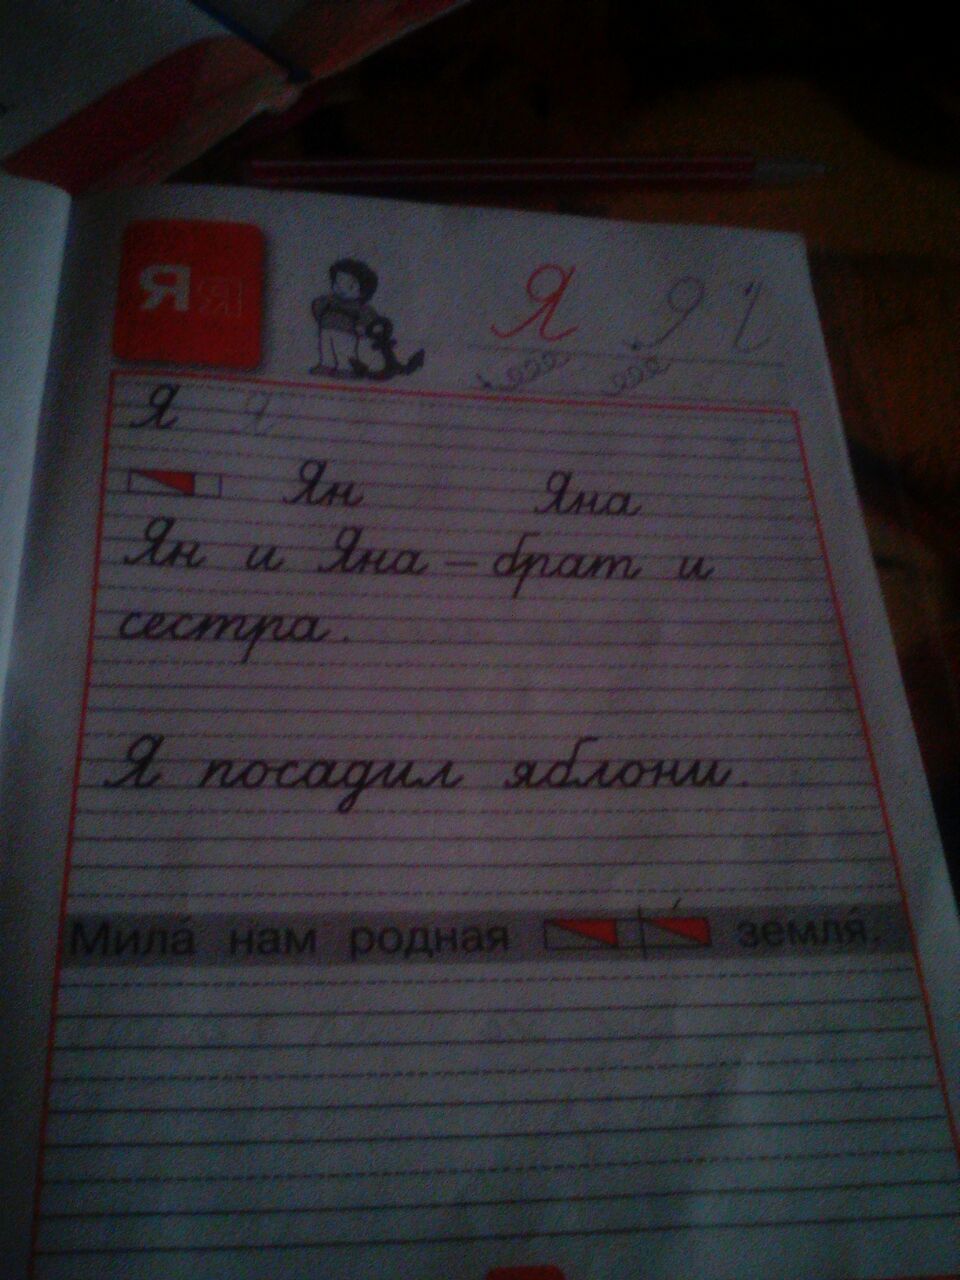 Я я
Я Я
Я Я
Ян Яна
Ян и Яна – брат и
сестра.
Я посадил яблони.
Мила́ нам родная земля́.